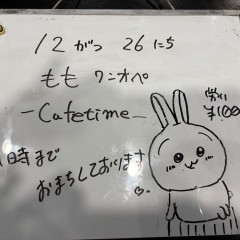 12がつ 26にち
もも ワンオペ
-Cafetime-
1時まで
おまちしております
¥1,00